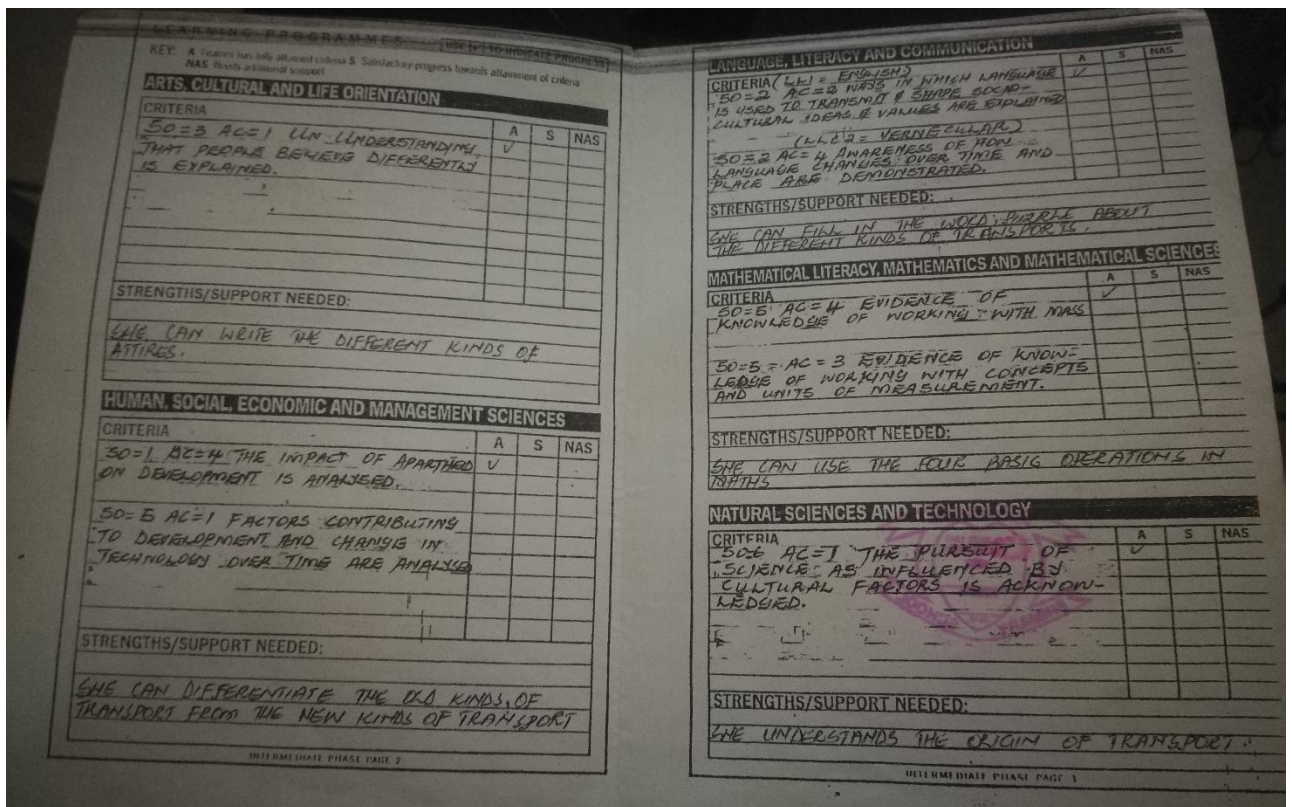 LEARNING PROGRAMMES
USE [✓] TO INDICATE PROGRESS
KEY: A Learner has fully attained criteria S Satisfactory progress towards attainment of criteria
NAS Needs additional support
ARTS, CULTURAL AND LIFE ORIENTATION
CRITERIA A S NAS
SO=3 AC=1 UNDERSTANDING ✓
THAT PEOPLE BELIEVE DIFFERENTLY
IS EXPLAINED.
STRENGTHS/SUPPORT NEEDED:
SHE CAN WRITE THE DIFFERENT KINDS OF
ATTIRES.
HUMAN, SOCIAL, ECONOMIC AND MANAGEMENT SCIENCES
CRITERIA A S NAS
SO=1 AC=4 THE IMPACT OF APARTHEID ✓
ON DEVELOPMENT IS ANALYSED.
SO=5 AC=1 FACTORS CONTRIBUTING
TO DEVELOPMENT AND CHANGE IN
TECHNOLOGY OVER TIME ARE ANALYSED
STRENGTHS/SUPPORT NEEDED:
SHE CAN DIFFERENTIATE THE OLD KINDS, OF
TRANSPORT FROM THE NEW KINDS OF TRANSPORT
INTERMEDIATE PHASE PAGE 2
LANGUAGE, LITERACY AND COMMUNICATION
CRITERIA (LL1 = ENGLISH) A S NAS
SO=2 AC=2 WAYS IN WHICH LANGUAGE ✓
IS USED TO TRANSMIT & SHAPE SOCIO-
CULTURAL IDEAS & VALUES ARE EXPLAINED
(LLC2 = VERNECULAR)
SO=2 AC=4 AWARENESS OF HOW
LANGUAGE CHANGES OVER TIME AND
PLACE ARE DEMONSTRATED.
STRENGTHS/SUPPORT NEEDED:
SHE CAN FILL IN THE PUZZLE ABOUT
THE DIFFERENT KINDS OF TRANSPORTS.
MATHEMATICAL LITERACY, MATHEMATICS AND MATHEMATICAL SCIENCES
CRITERIA A S NAS
SO=5 AC=4 EVIDENCE OF ✓
KNOWLEDGE OF WORKING WITH MASS
SO=5 = AC=3 EVIDENCE OF KNOW-
LEDGE OF WORKING WITH CONCEPTS
AND UNITS OF MEASUREMENT.
STRENGTHS/SUPPORT NEEDED:
SHE CAN USE THE FOUR BASIC OPERATIONS IN
MATHS
NATURAL SCIENCES AND TECHNOLOGY
CRITERIA A S NAS
SO=6 AC=1 THE PURSUIT OF ✓
SCIENCE AS INFLUENCED BY
CULTURAL FACTORS IS ACKNOW-
LEDGED.
STRENGTHS/SUPPORT NEEDED:
SHE UNDERSTANDS THE ORIGIN OF TRANSPORT.
INTERMEDIATE PHASE PAGE 3